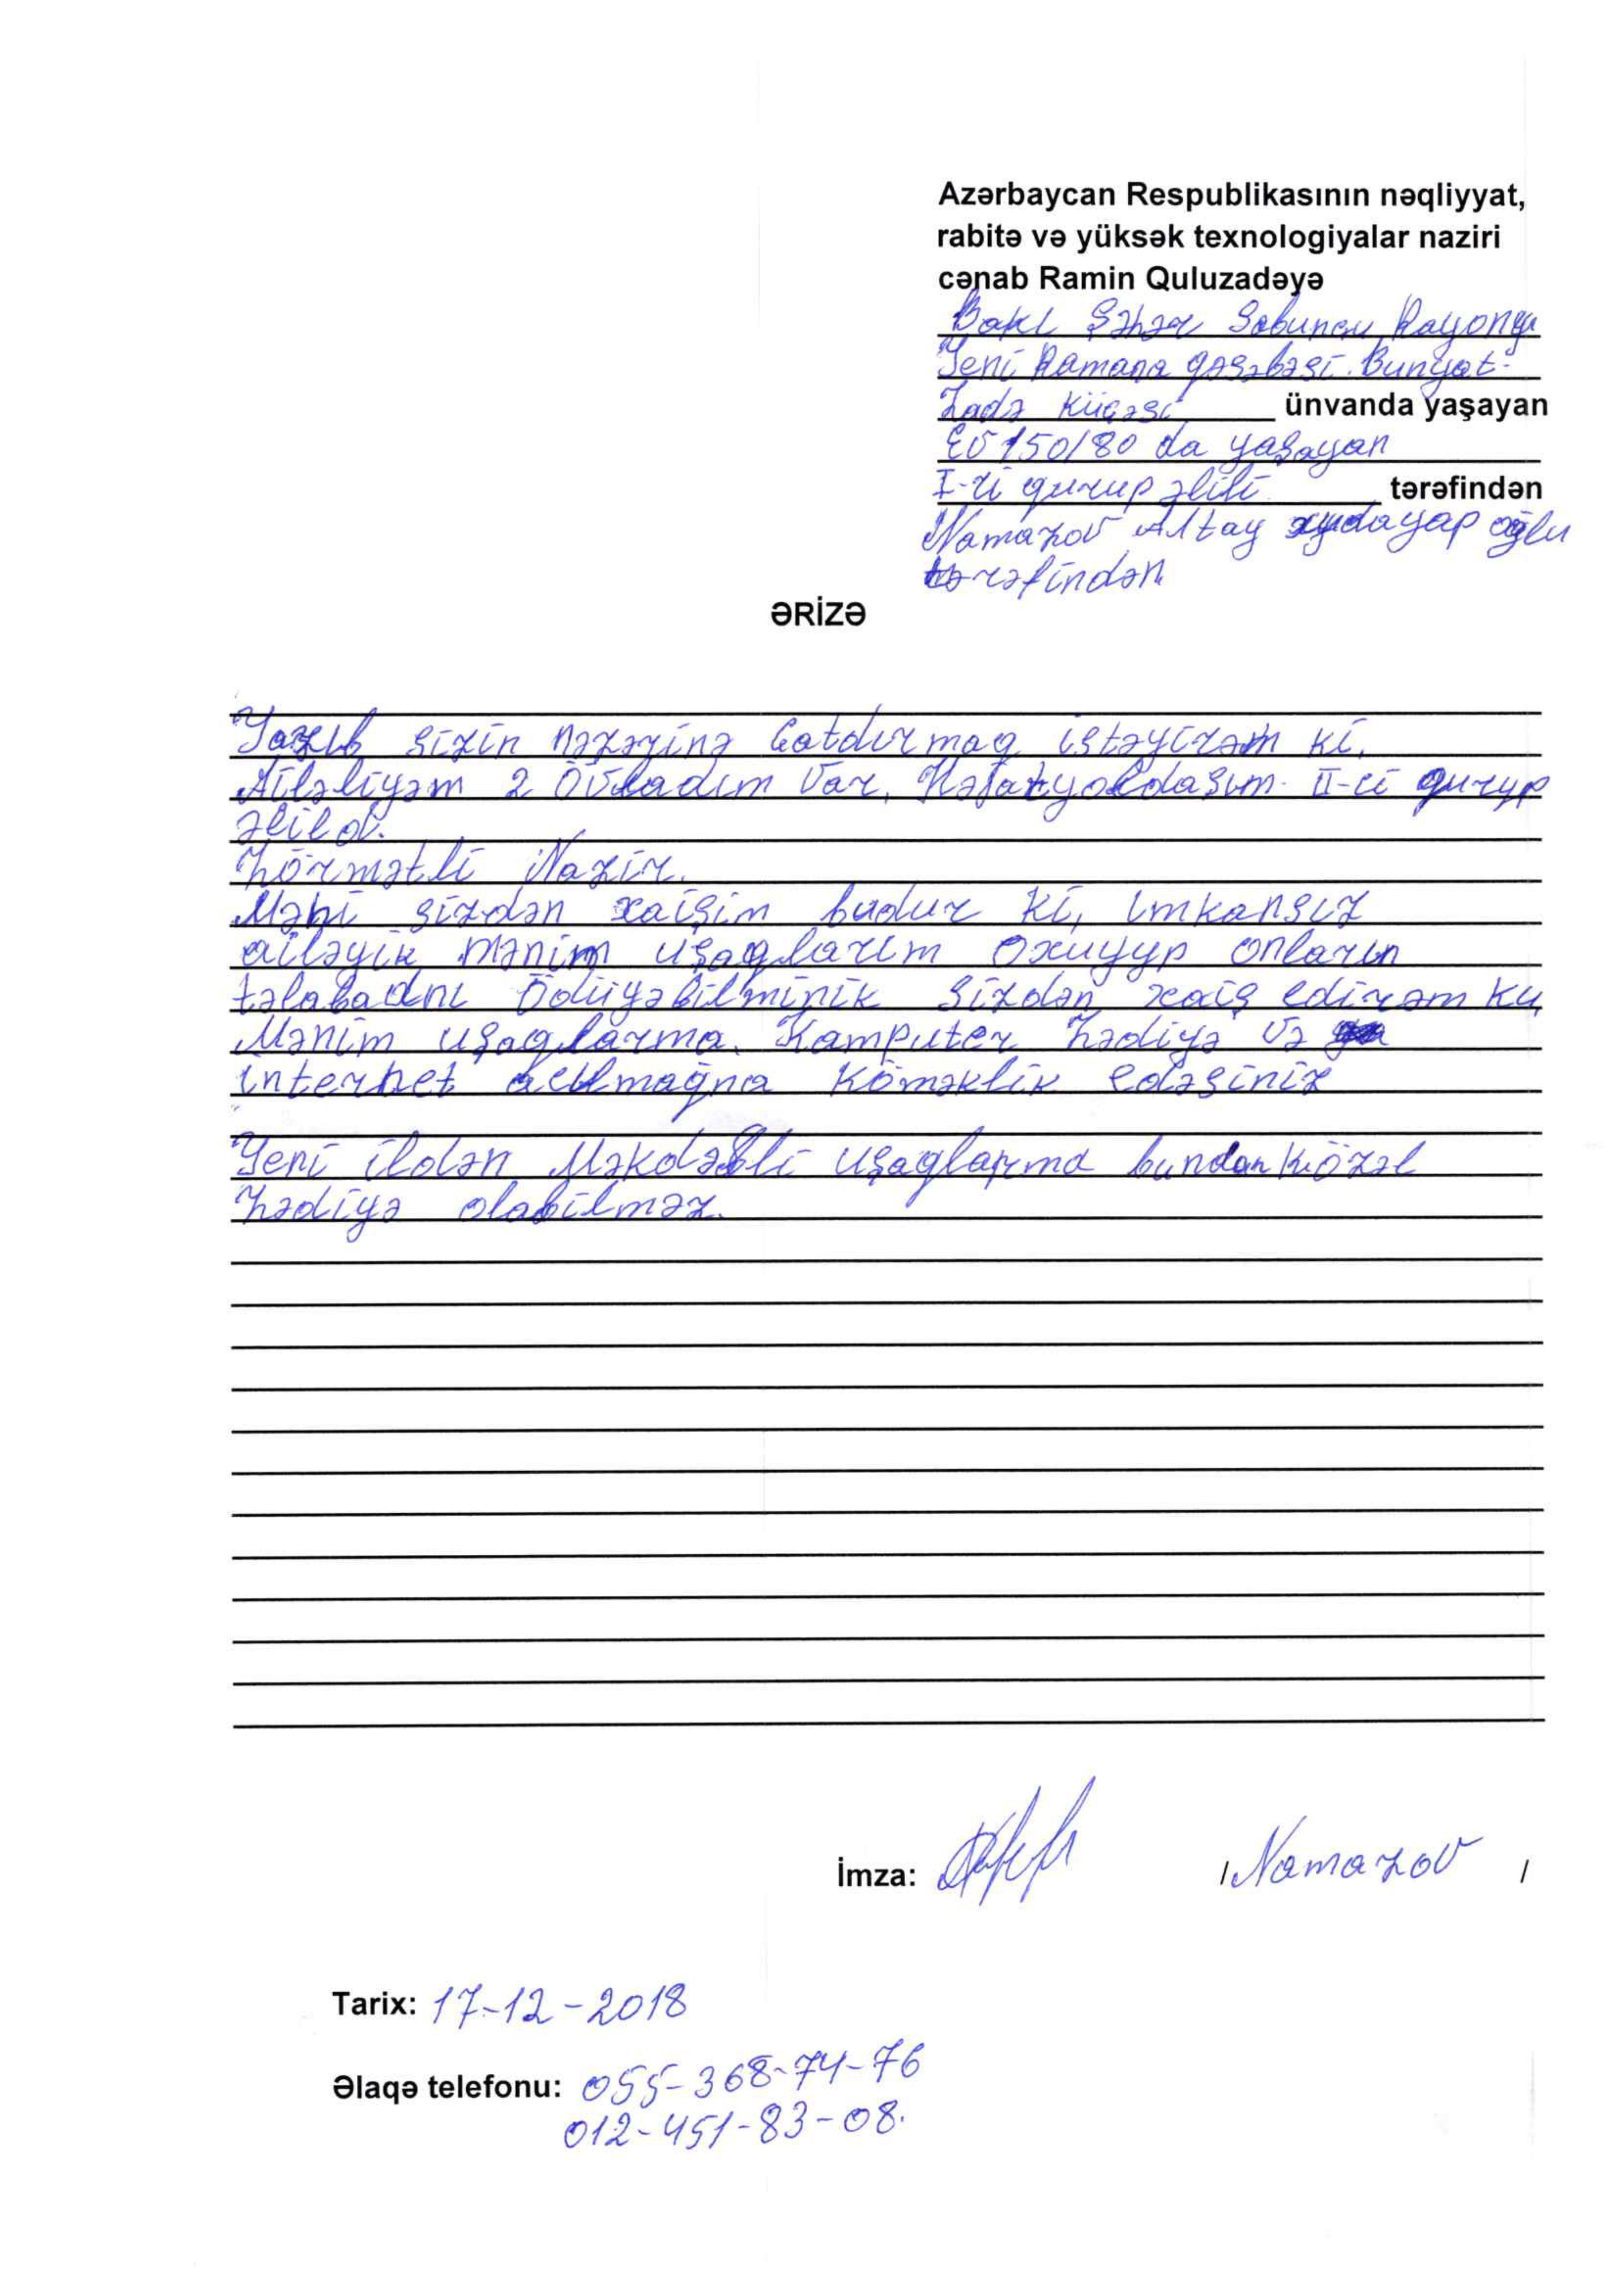 Azərbaycan Respublikasının nəqliyyat,
rabitə və yüksək texnologiyalar naziri
cənab Ramin Quluzadəyə
Bakı Şəhər Sabunçu Rayonu
Yeni Ramana qəsəbəsi. Bunyat-
Zadə Küçəsi ünvanda yaşayan
Ev 150/80 da yaşayan
I-ri qurup əlili tərəfindən
Namazov Altay oğlu
tərəfindən
ƏRİZƏ
Yazıb sizin nəzəyinə Çatdırmaq istəyirəm ki,
Ailəliyəm 2 Övladım var, Həfatyoldaşım II-ci qurup
əlild.
hörmətli Nazir.
Məni sizdən xaişim budur ki, imkansız
ailəyik mənim uşaqlarım oxuyyp onların
tələbadnı Ödüyəbilminik Sizdən xaiş edirəm ku,
Mənim uşaqlarma. Kamputer hədiyə və
internet acılmağna Köməklik edəsiniz
Yeni ildən Məkdəbli uşaqlarıma bundan közəl
hədiyə olabilməz.
İmza: / Namazov /
Tarix: 17-12-2018
Əlaqə telefonu: 055-368-74-76
012-451-83-08.